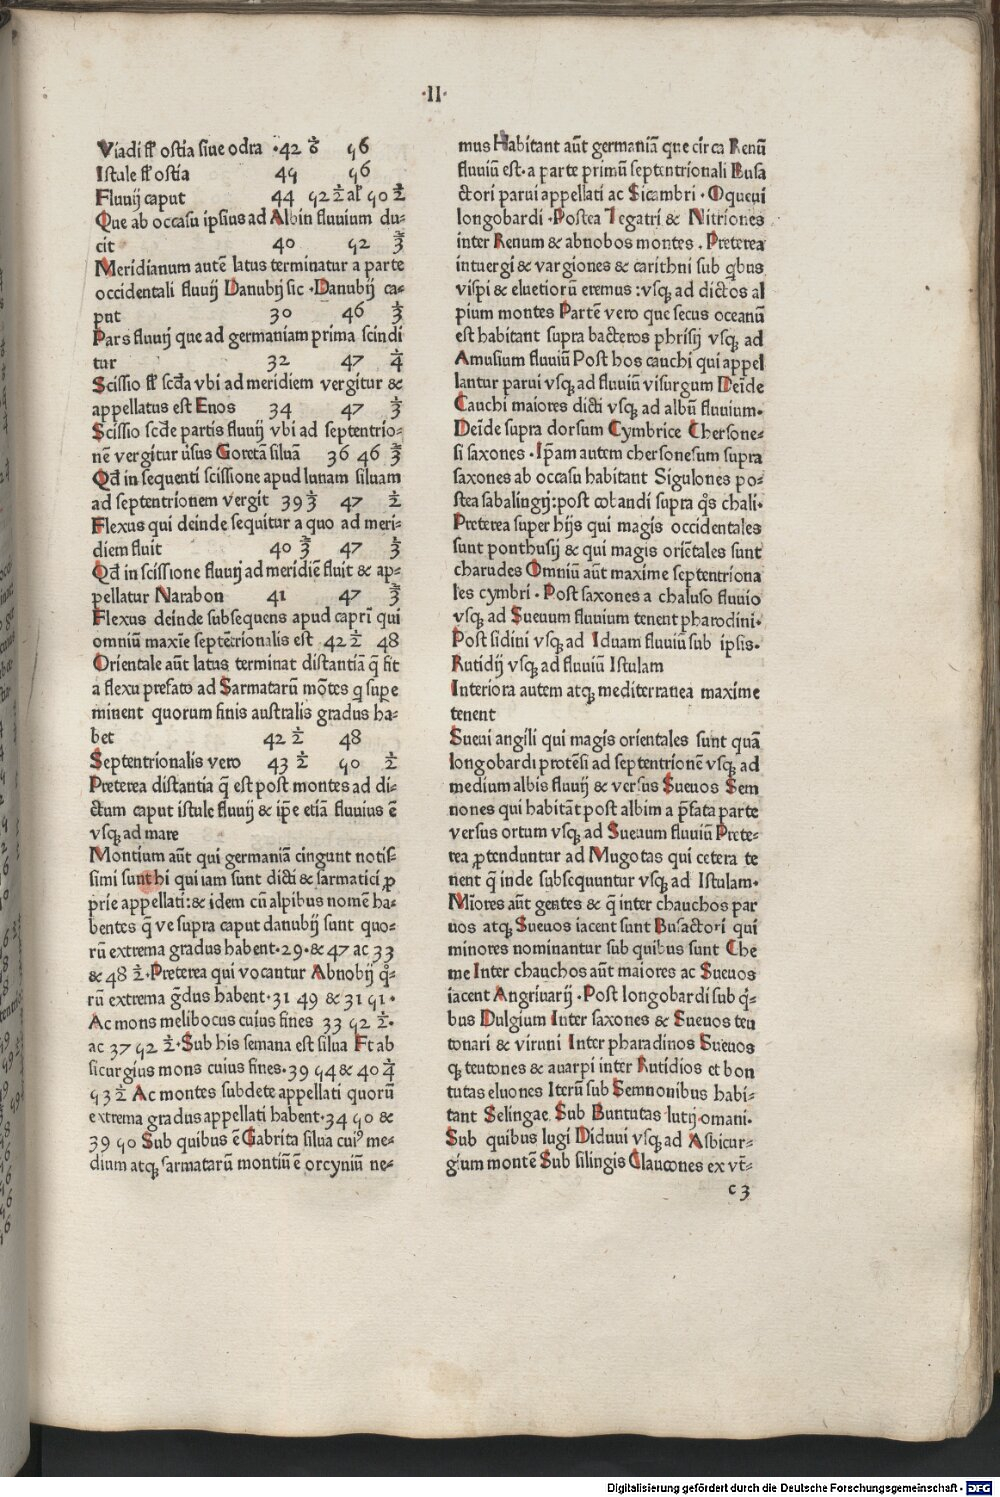 ·II·
Viadi fl̄ ostia siue odra ·42 ⅙ 56
Istule fl̄ ostia 45 56
Fluuij caput 44 52 ½ al̄ 50 ½
Que ab occasu ipsius ad Albin fluuium du⸗
cit 40 52 ⅔
Meridianum autē latus terminatur a parte
occidentali fluuij Danubij sic ·Danubij ca⸗
put 30 46 ⅓
Pars fluuij que ad germaniam prima scindi
tur 32 47 ¼
Scissio fl̄ scđa vbi ad meridiem vergitur &
appellatus est Enos 34 47 ⅓
Scissio scđe partis fluuij vbi ad septentrio⸗
nē vergitur ũsus Goretā siluā 36 46 ⅔
Qđ in sequenti scissione apud lunam siluam
ad septentrionem vergit 39 ⅓ 47 ½
Flexus qui deinde sequitur a quo ad meri⸗
diem fluit 40 ⅔ 47 ⅓
Qđ in scissione fluuij ad meridiē fluit & ap⸗
pellatur Narabon 41 47 ⅔
Flexus deinde subsequens apud caprī qui
omniū maxīe septētrionalis est 42 ½ 48
Orientale aūt latus terminat distantiā q̄ fit
a flexu prefato ad Sarmatarū mōtes q supe
minent quorum finis australis gradus ha⸗
bet 42 ½ 48
Septentrionalis vero 43 ½ 50 ½
Preterea distantia q̄ est post montes ad di⸗
ctum caput istule fluuij & ip̄e etiā fluuius ē
vsqꝫ ad mare
Montium aūt qui germaniā cingunt notis⸗
simi sunt hi qui iam sunt dicti & sarmatici ꝓ
prie appellati:& idem cū alpibus nomē ha⸗
bentes q̄ ve supra caput danubij sunt quo⸗
rū extrema gradus habent·29·& 47 ac 33
& 48 ½·Preterea qui vocantur Abnobij qͦ⸗
rū extrema g̃dus habent·31 49 & 31 51·
Ac mons melibocus cuius fines 33 52 ½·
ac 37 52 ½·Sub his semana est silua Et ab
sicurgius mons cuius fines·39 54 & 40 ¼
53 ½ Ac montes subdete appellati quorū
extrema gradus appellati habent·34 50 &
39 50 Sub quibus ē Gabrita silua cuiꝰ me⸗
dium atqꝫ sarmatarū montiū ē orcyniū ne⸗
mus Habitant aūt germaniā que circa Renū
fluuiū est·a parte primū septentrionali Busa
ctori parui appellati ac Sicambri·Oqueui
longobardi·Postea Tegatri & Nitriones
inter Renum & abnobos montes·Preterea
intuergi & vargiones & carithni sub qͥbus
vispi & eluetiorū eremus:vsqꝫ ad dictos al
pium montes Partē vero que secus oceanū
est habitant supra bacteros phrisij vsqꝫ ad
Amusium fluuiū Post hos cauchi qui appel
lantur parui vsqꝫ ad fluuiū visurgum Deīde
Cauchi maiores dicti vsqꝫ ad albū fluuium·
Deīde supra dorsum Cymbrice Chersone⸗
si saxones·Ip̄am autem chersonesum supra
saxones ab occasu habitant Sigulones po⸗
stea sabalingij:post cobandi supra qͦs chali·
Preterea super hijs qui magis occidentales
sunt ponthusij & qui magis oriētales sunt
charudes Omniū aūt maxime septentriona
les cymbri·Post saxones a chaluso fluuio
vsqꝫ ad Sueuum fluuium tenent pharodini·
Post sidini vsqꝫ ad Iduam fluuiū sub ipsis·
Rutidij vsqꝫ ad fluuiū Istulam
Interiora autem atqꝫ mediterranea maxime
tenent
Sueui angili qui magis orientales sunt quā
longobardi protēsi ad septentrionē vsqꝫ ad
medium albis fluuij & versus Sueuos Sem
nones qui habitāt post albim a p̄fata parte
versus ortum vsqꝫ ad Sueuum fluuiū Prete⸗
rea ꝓtenduntur ad Mugotas qui cetera te
nent q̄ inde subsequuntur vsqꝫ ad Istulam·
Miores aūt gentes & q̄ inter chauchos par
uos atqꝫ Sueuos iacent sunt Busactori qui
minores nominantur sub quibus sunt Che
me Inter chauchos aūt maiores ac Sueuos
iacent Angriuarij·Post longobardi sub qͥ⸗
bus Dulgium Inter saxones & Sueuos teu
tonari & viruni Inter pharadinos Sueuos
qꝫ teutones & auarpi inter Rutidios et bon
tutas eluones Iterū sub Semnonibus habi⸗
tant Selingae Sub Buntutas lutij omani·
Sub quibus lugi Diduui vsqꝫ ad Asbicur⸗
gium montē Sub silingis Glaucones ex vt̄⸗
c 3
Digitalisierung gefördert durch die Deutsche Forschungsgemeinschaft - DFG